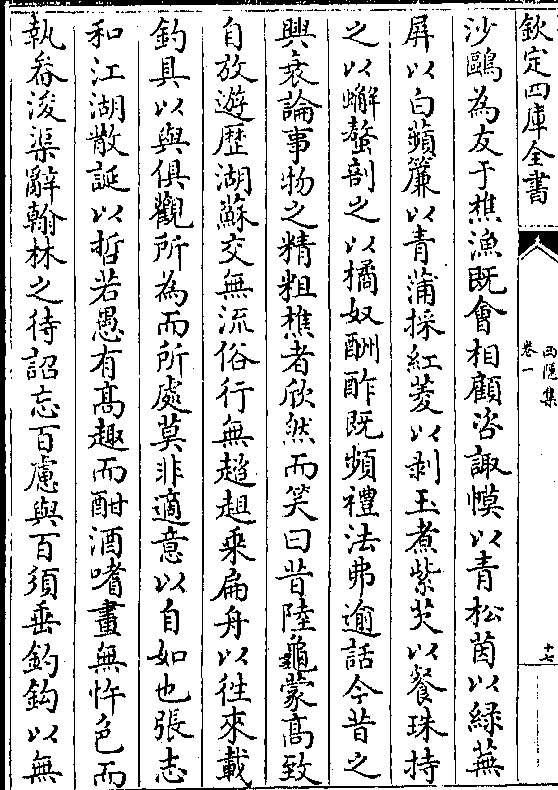 欽定四庫全書
西隠集
卷一
十七
沙鷗為友于樵漁既㑹相顧咨諏幙以青松茵以緑蕪
屏以白蘋簾以青蒲採紅菱以剥玉煮紫芡以餐珠持
之以蠏螯剖之以橘奴酬酢既頻禮法弗逾話今昔之
興衰論事物之精粗樵者欣然而笑曰昔陸龜蒙髙致
自放遊歴湖蘇交無流俗行無趦趄乗扁舟以徃來載
釣具以與俱觀所為而所處莫非適意以自如也張志
和江湖散誕以哲若愚有髙趣而酣酒嗜畫無忤色而
執畚浚渠辭翰林之待詔忘百慮與百須垂釣鈎以無